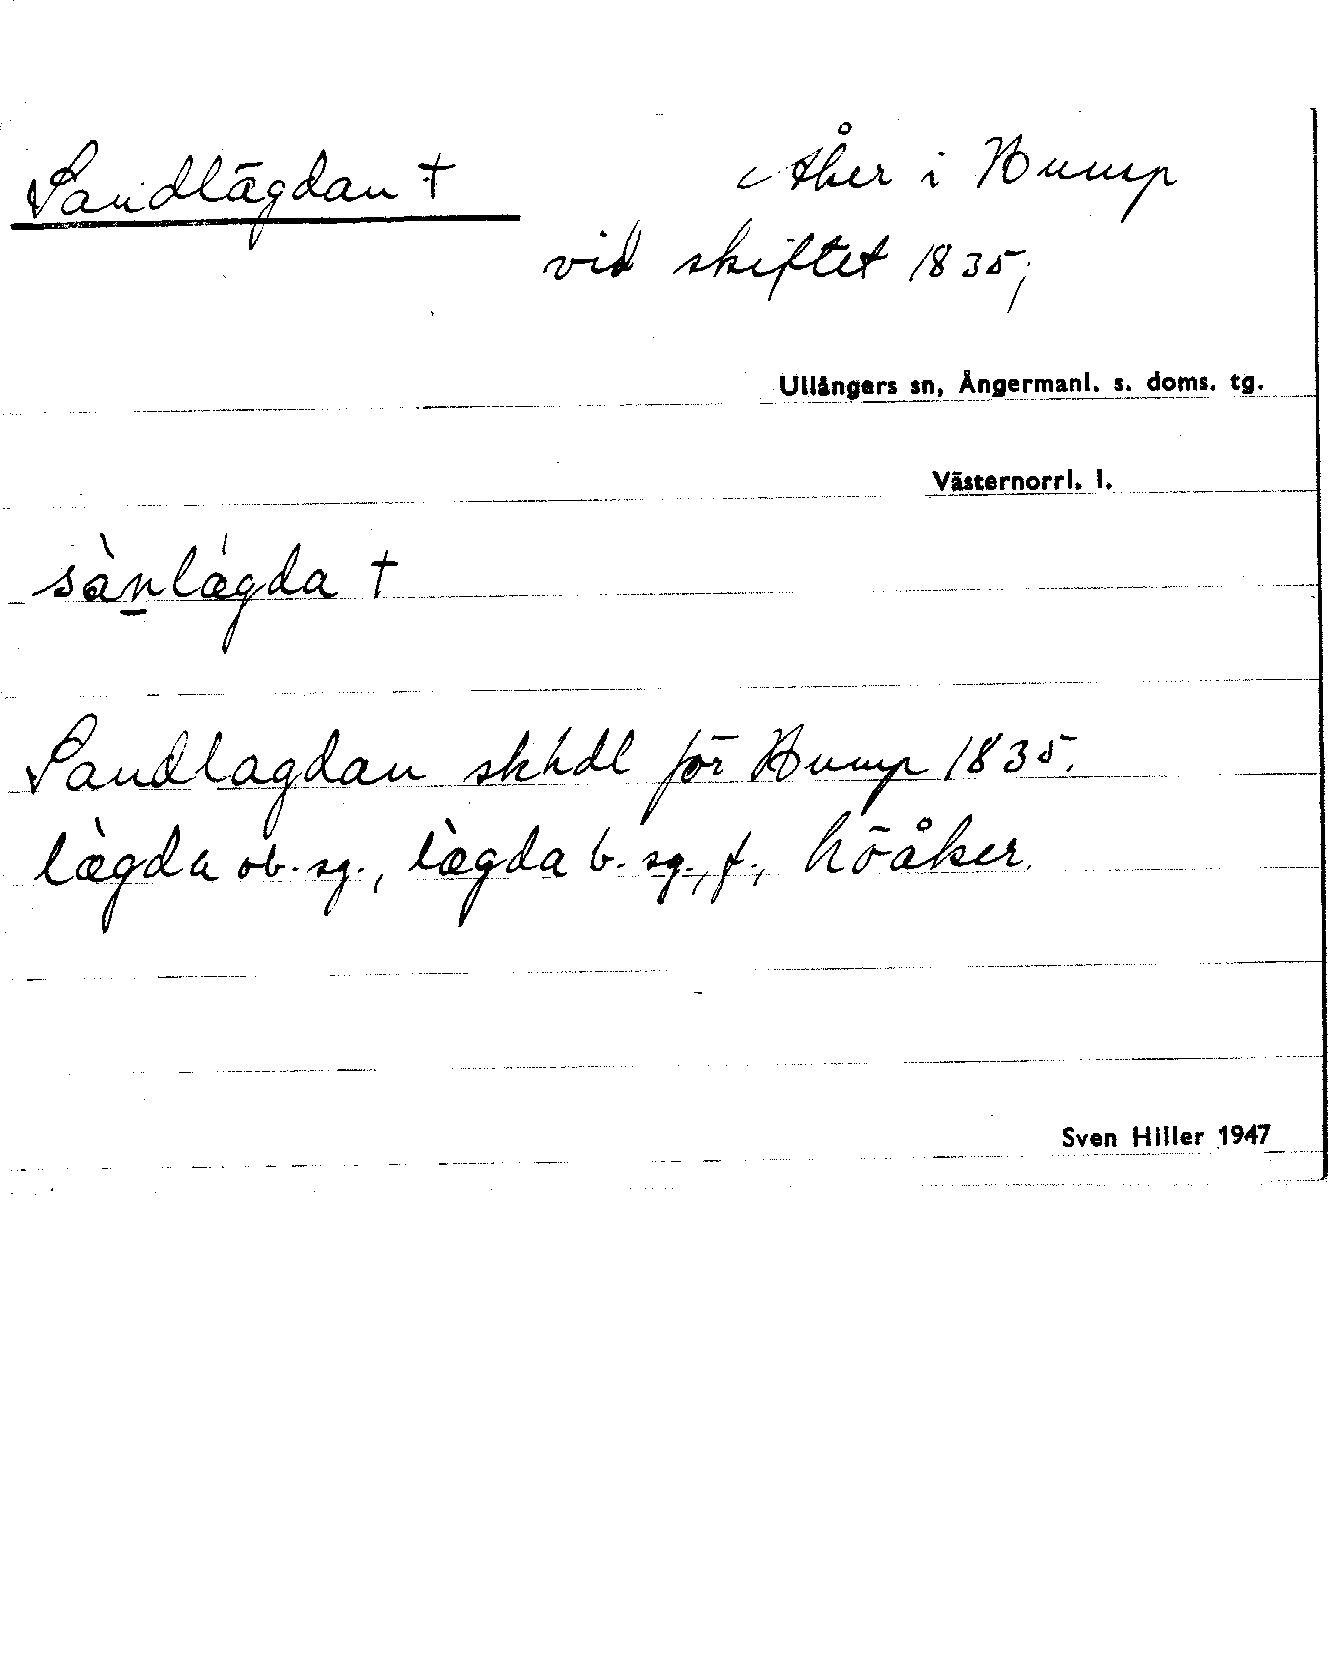 Sandlägdan †
Åker i Hump
vid skiftet 1835;
Ullångers sn, Ångermanl. s. doms. tg.
Västernorrl. l.
sàn̲lǽgda †
Sandlagdan skhdl för Hump 1835.
lægda ob. sg., lægda b. sg., f., höåker.
Sven Hiller 1947